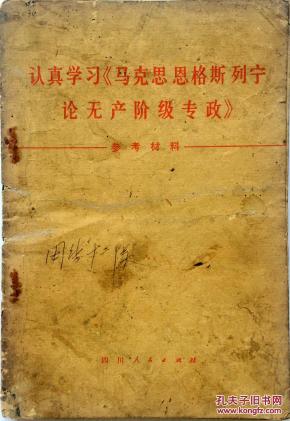 认真学习《马克思恩格斯列宁
论无产阶级专政》
参考材料
四川人民出版社
孔夫子旧书网